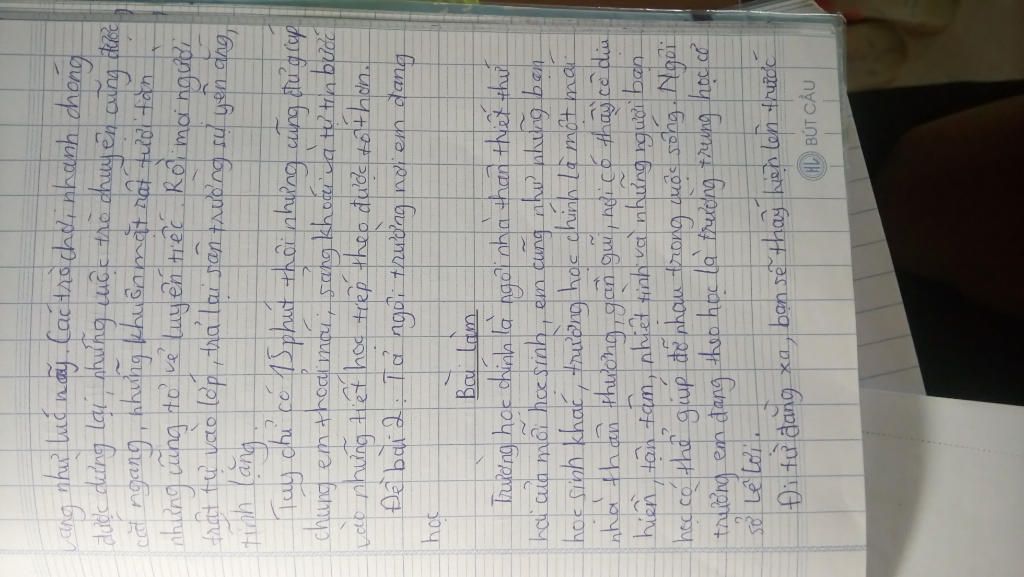 vàng như lúc nãy. Các trò chơi nhanh chóng
được dừng lại, những cuộc trò chuyện cũng được
cắt ngang, những khuôn mặt rất tươi tắn
nhưng cũng tỏ vẻ luyến tiếc. Rồi mọi người
trật tự vào lớp, trả lại sân trường sự yên ắng,
tĩnh lặng.
Tuy chỉ có 15 phút thôi nhưng cũng đủ giúp
chúng em thoải mái, sảng khoái và tự tin bước
vào những tiết học tiếp theo được tốt hơn.
Đề bài 2: Tả ngôi trường nơi em đang
học
Bài làm
Trường học chính là ngôi nhà thân thiết thứ
hai của mỗi học sinh, em cũng như những bạn
học sinh khác, trường học chính là một mái
nhà thân thương, gần gũi, nơi có thầy cô dịu
hiền, tận tâm, nhiệt tình và những người bạn
học có thể giúp đỡ nhau trong cuộc sống. Ngôi
trường em đang theo học là trường trung học cơ
sở Lê Lợi.
Đi từ đằng xa, bạn sẽ thấy hiện lên trước
BÚT CÂU